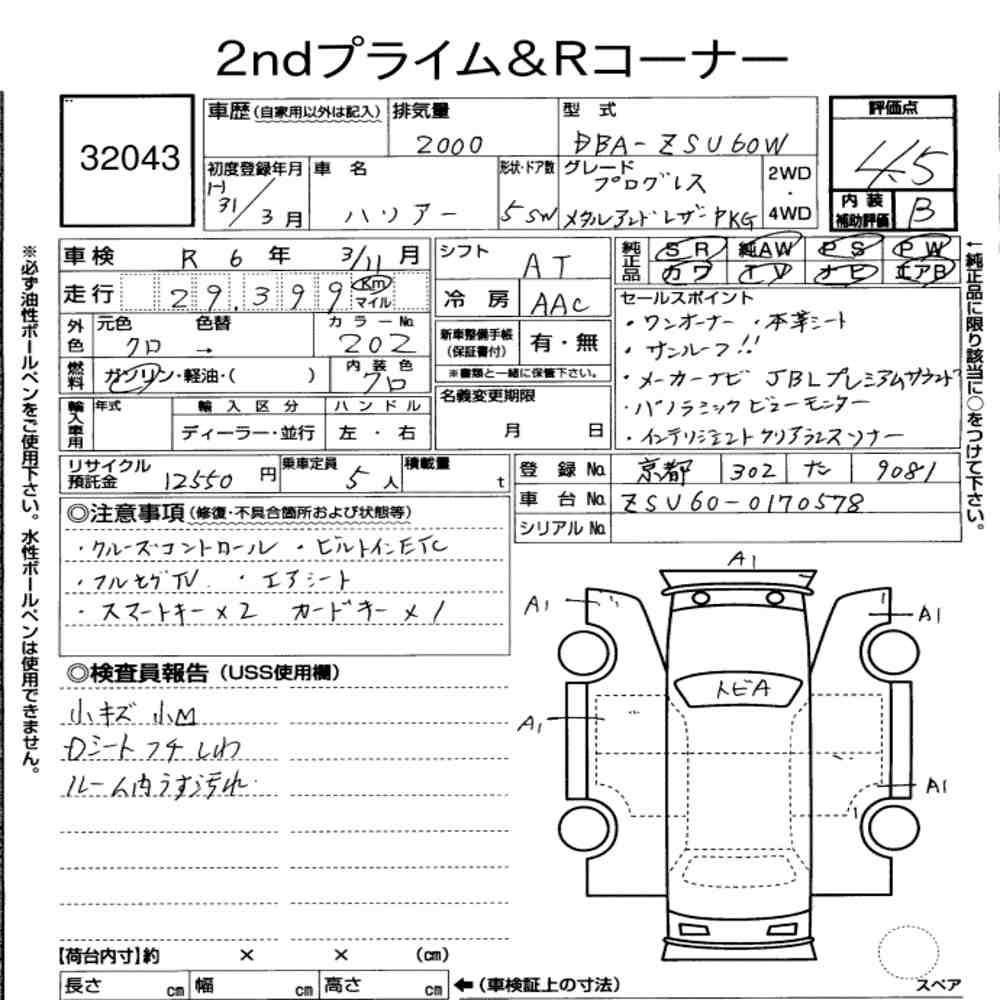 2ndプライム&Rコーナー
32043
車歴(自家用以外は記入)
排気量
2000
型 式
DBA-ZSU60W
評価点
4.5
内装補助評価
B
初度登録年月
H31/3月
車 名
ハリアー
形状・ドア数
5SW
グレード
プログレス
メタルアンドレザーPKG
2WD
・
4WD
車検 R 6 年 3/11 月
走行 29,399 Km マイル
外色
元色 クロ
色替 →
カラーNo. 202
燃料
ガソリン・軽油・( )
内装色
クロ
輸入車用
年式
輸入区分
ディーラー・並行
ハンドル
左・右
シフト
AT
冷房
AAC
新車整備手帳(保証書付)
有・無
※書類と一緒に保管下さい。
名義変更期限
月 日
純正品
SR 純AW PS PW
カワ TV ナビ エアB
セールスポイント
・ワンオーナー ・本革シート
・サンルーフ!!
・メーカーナビ JBLプレミアムサウンド
・パノラミックビューモニター
・インテリジェントクリアランスソナー
←純正品に限り該当に○をつけて下さい。
※必ず油性ボールペンをご使用下さい。水性ボールペンは使用できません。
リサイクル預託金
12550円
乗車定員
5人
積載量
t
登録No. 京都 302 ナニ 9081
車台No. ZSU60-0170578
シリアルNo.
◎注意事項(修復・不具合箇所および状態等)
・クルーズコントロール ・ビルトインETC
・フルセグTV ・エアシート
・スマートキー×2 カードキー×1
◎検査員報告(USS使用欄)
小キズ 小M
Dシートフチしわ
ルーム内うすぅ汚れ
A1
A1
A1
トビA
A1
A1
【荷台内寸】約 × × (cm)
長さ cm 幅 cm 高さ cm
←(車検証上の寸法)
スペア